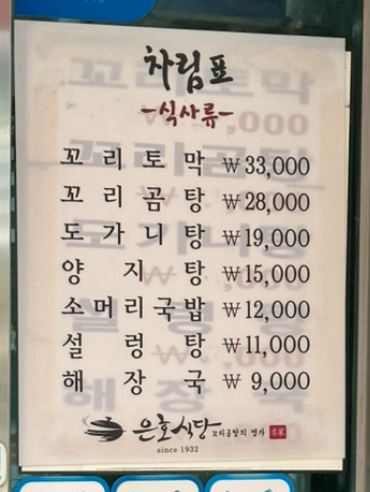 차림표
-식사류-
꼬리토막 ₩33,000
꼬리곰탕 ₩28,000
도가니탕 ₩19,000
양지탕 ₩15,000
소머리국밥 ₩12,000
설렁탕 ₩11,000
해장국 ₩9,000
은호식당 꼬리곰탕의 명가
since 1932